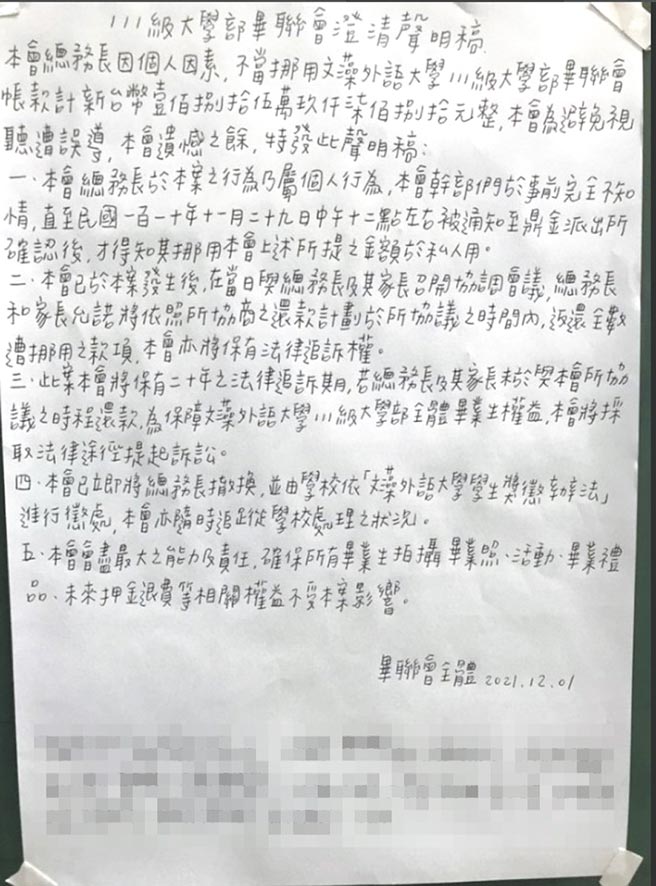 111級大學部畢聯會澄清聲明稿
本會總務長因個人因素，不當挪用文藻外語大學111級大學部畢聯會
帳款計新台幣壹佰捌拾伍萬玖仟柒佰捌拾元整，本會為避免視
聽遭誤導，本會遺憾之餘，特發此聲明稿：
一、本會總務長於本案之行為乃屬個人行為，本會幹部們於事前完全不知
情，直至民國一百一十年十一月二十九日中午十二點左右被通知至鼎金派出所
確認後，才得知其挪用本會上述所提之金額於私人用。
二、本會已於本案發生後，在當日與總務長及其家長召開協調會議，總務長
和家長允諾將依照所協商之還款計劃於所協議之時間內，返還全數
遭挪用之款項，本會亦將保有法律追訴權。
三、此案本會將保有二十年之法律追訴期，若總務長及其家長未於與本會所協
議之時程還款，為保障文藻外語大學111級大學部全體畢業生權益，本會將採
取法律途徑提起訴訟。
四、本會已立即將總務長撤換，並由學校依「文藻外語大學學生獎懲辦法」
進行懲處，本會亦隨時追蹤學校處理之狀況。
五、本會會盡最大之能力及責任，確保所有畢業生拍攝畢業照、活動、畢業禮
品、未來押金退費等相關權益不受本案影響。
畢聯會全體 2021.12.01